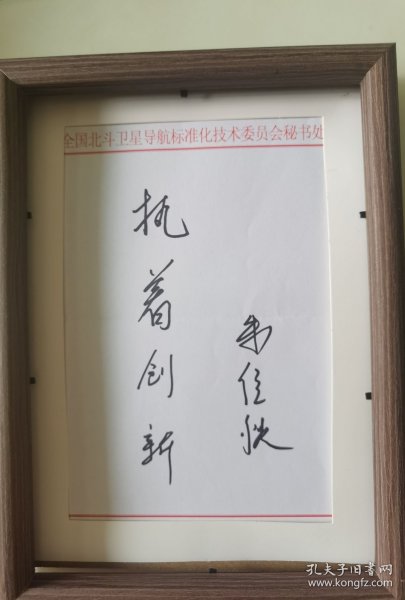 全国北斗卫星导航标准化技术委员会秘书处
执着创新
朱位秋
孔夫子旧书网
www.kongfz.com